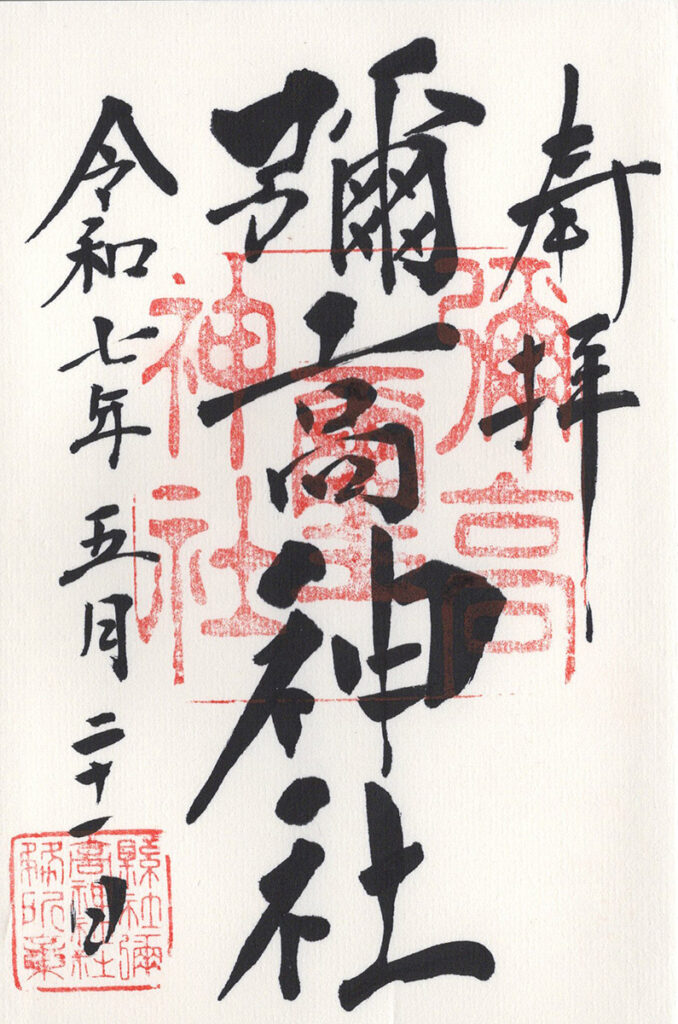 奉拝
彌高神社
令和七年五月二十一日
彌高
神社
縣社彌
高神社
務所章